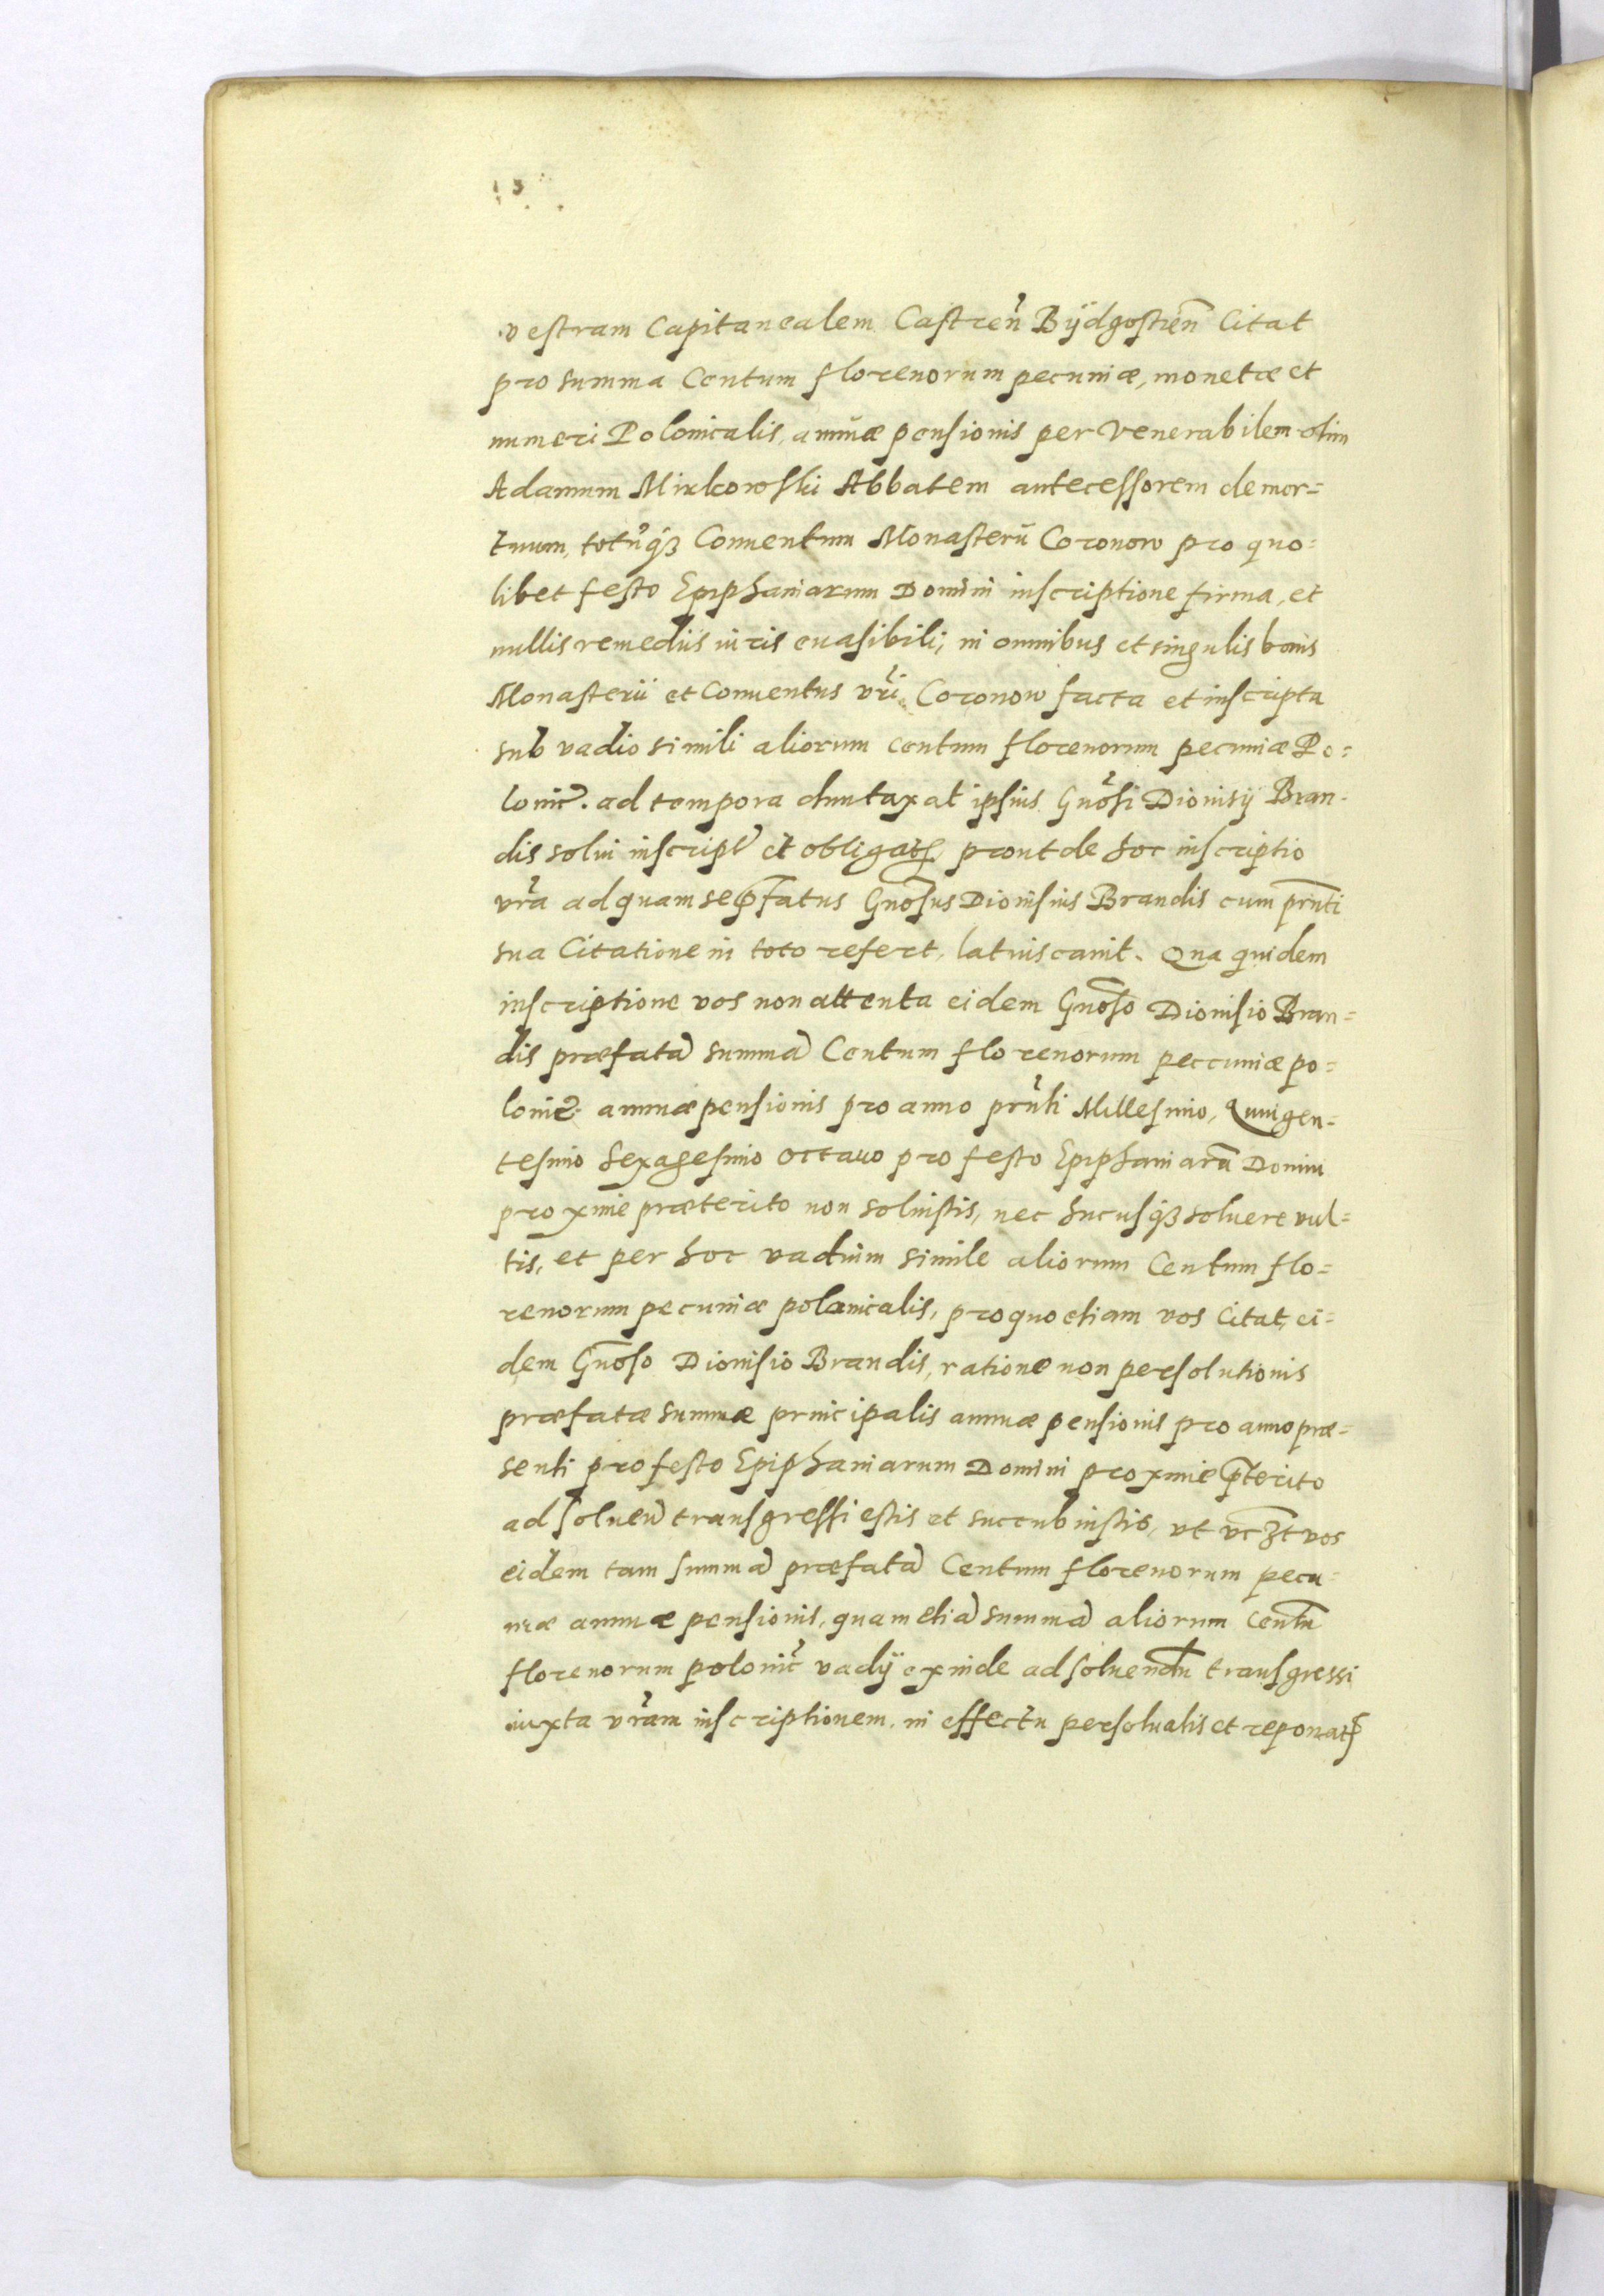 vestram Capitanealem Castren̉ Bÿdgostien̄ Citat
pro summa Centum florenorum pecuniæ, monetæ et
numeri Polonicalis, annuæ pensionis per Venerabilem olim
Adamum Mirkowski Abbatem antecessorem demor=
tuum, totūqꝫ Conuentum Monasterii Coronow pro quo=
libet festo Epiphaniarum Domini inscriptione firma, et
nullis remediis iuris euasibili, in omnibus et singulis bonis
Monasterii et Conuentus vr̃i Coronow facta et inscripta
sub vadio simili aliorum centum florenorum pecuniæ Po=
lonic̉. ad tempora duntaxat ipsius Gnõsi Dionisÿ Bran=
dis solui inscript̉ et obligatꝭ, prout de hoc inscriptio
vr̃a ad quam se p̄fatus Gnōsus Dionisius Brandis cum pr̄nti
sua Citatione in toto refert, latius canit. Qua quidem
inscriptione vos non attenta eidem Gnōso Dionisio Bran=
dis præfatā summā Centum florenorum peccuniæ po=
lonic̉. annuæ pensionis pro anno pr̃nti Millesimo, Quingen=
tesimo Sexagesimo octauo pro festo Epiphaniarū Domini
proxime præterito non soluistis, nec hucusqꝫ soluere vul=
tis, et per hoc vadium simile aliorum Centum flo=
renorum pecuniæ polonicalis, pro quo etiam vos Citat, ei=
dem Gnōso Dionisio Brandis, ratione non persolutionis
præfatæ summæ principalis annuæ pensionis pro anno præ=
senti pro festo Epiphaniarum Domini proxime p̄terito
ad soluen̄ transgressi estis et succubuistis, vt vcꝫt vos
eidem tam summā præfatā Centum florenorum pecu=
niæ annuæ pensionis, quam etiā summā aliorum Centū
florenorum polonic̉ vadÿ exinde ad soluendū transgressi
iuxta vr̃am inscriptionem, in effectu persoluatis et reponatꝭ